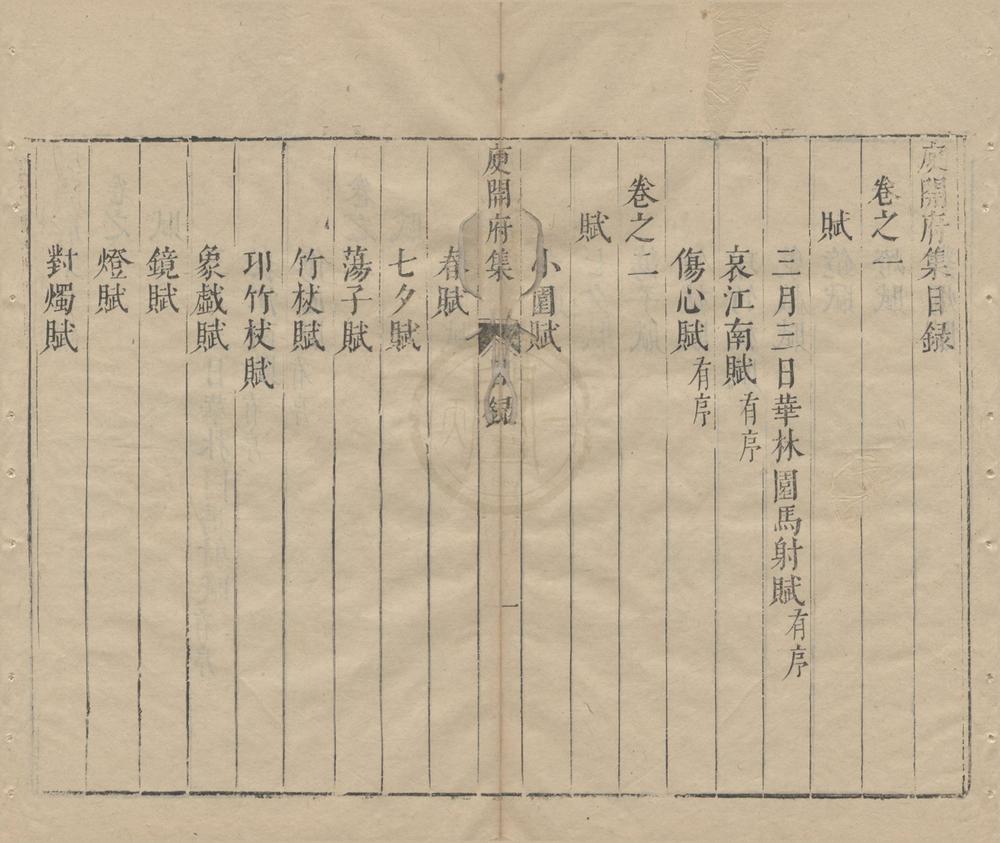 庾開府集目録
卷之一
賦
三月三日華林園馬射賦有序
哀江南賦有序
傷心賦有序
卷之二
賦
小園賦
庾開府集
目録
一
春賦
七夕賦
蕩子賦
竹杖賦
卭竹杖賦
象戲賦
鏡賦
燈賦
對燭賦